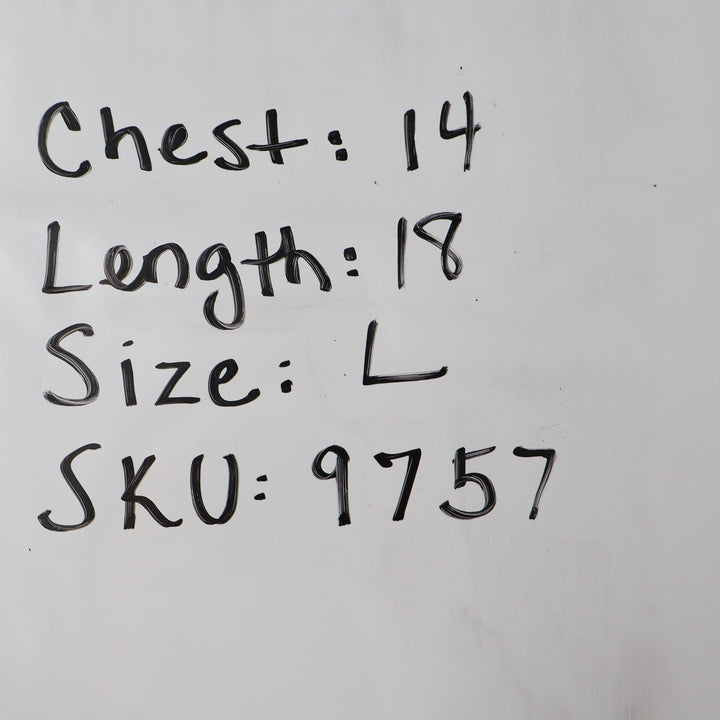 Chest: 14
Length: 18
Size: L
SKU: 9757